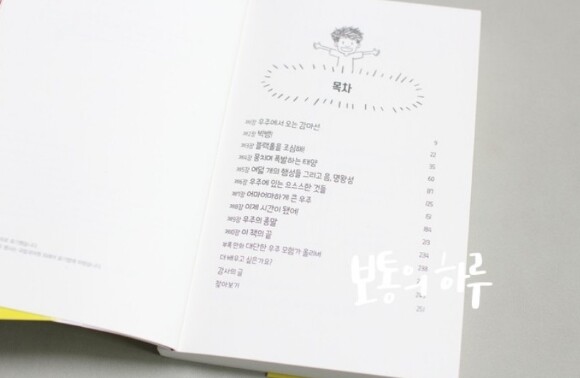 목차
제1장 우주에서 오는 감마선 9
제2장 빅뱅! 22
제3장 블랙홀을 조심해! 35
제4장 뭉치며 폭발하는 태양 60
제5장 여덟 개의 행성들 그리고 음, 명왕성 87
제6장 우주에 있는 으스스한 것들 125
제7장 어마어마하게 큰 우주 151
제8장 이제 시간이 됐어! 184
제9장 우주의 종말 219
제10장 이 책의 끝 234
부록 만화 대단한 우주 모험가 올리버 238
더 배우고 싶은가요?
감사의 글
찾아보기 251
보통의 하루